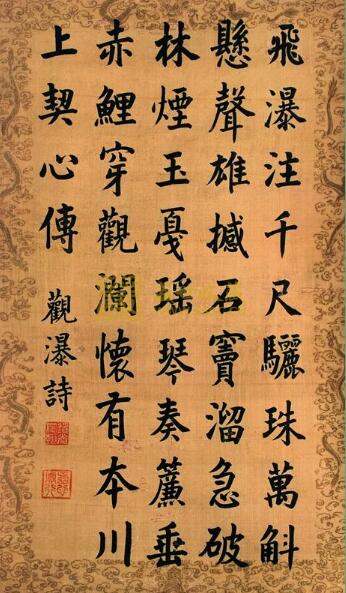 飛瀑注千尺驪珠萬斛
懸聲雄撼石竇溜急破
林煙玉戛瑶琴奏簾垂
赤鯉穿觀瀾懷有本川
上契心傳 觀瀑詩